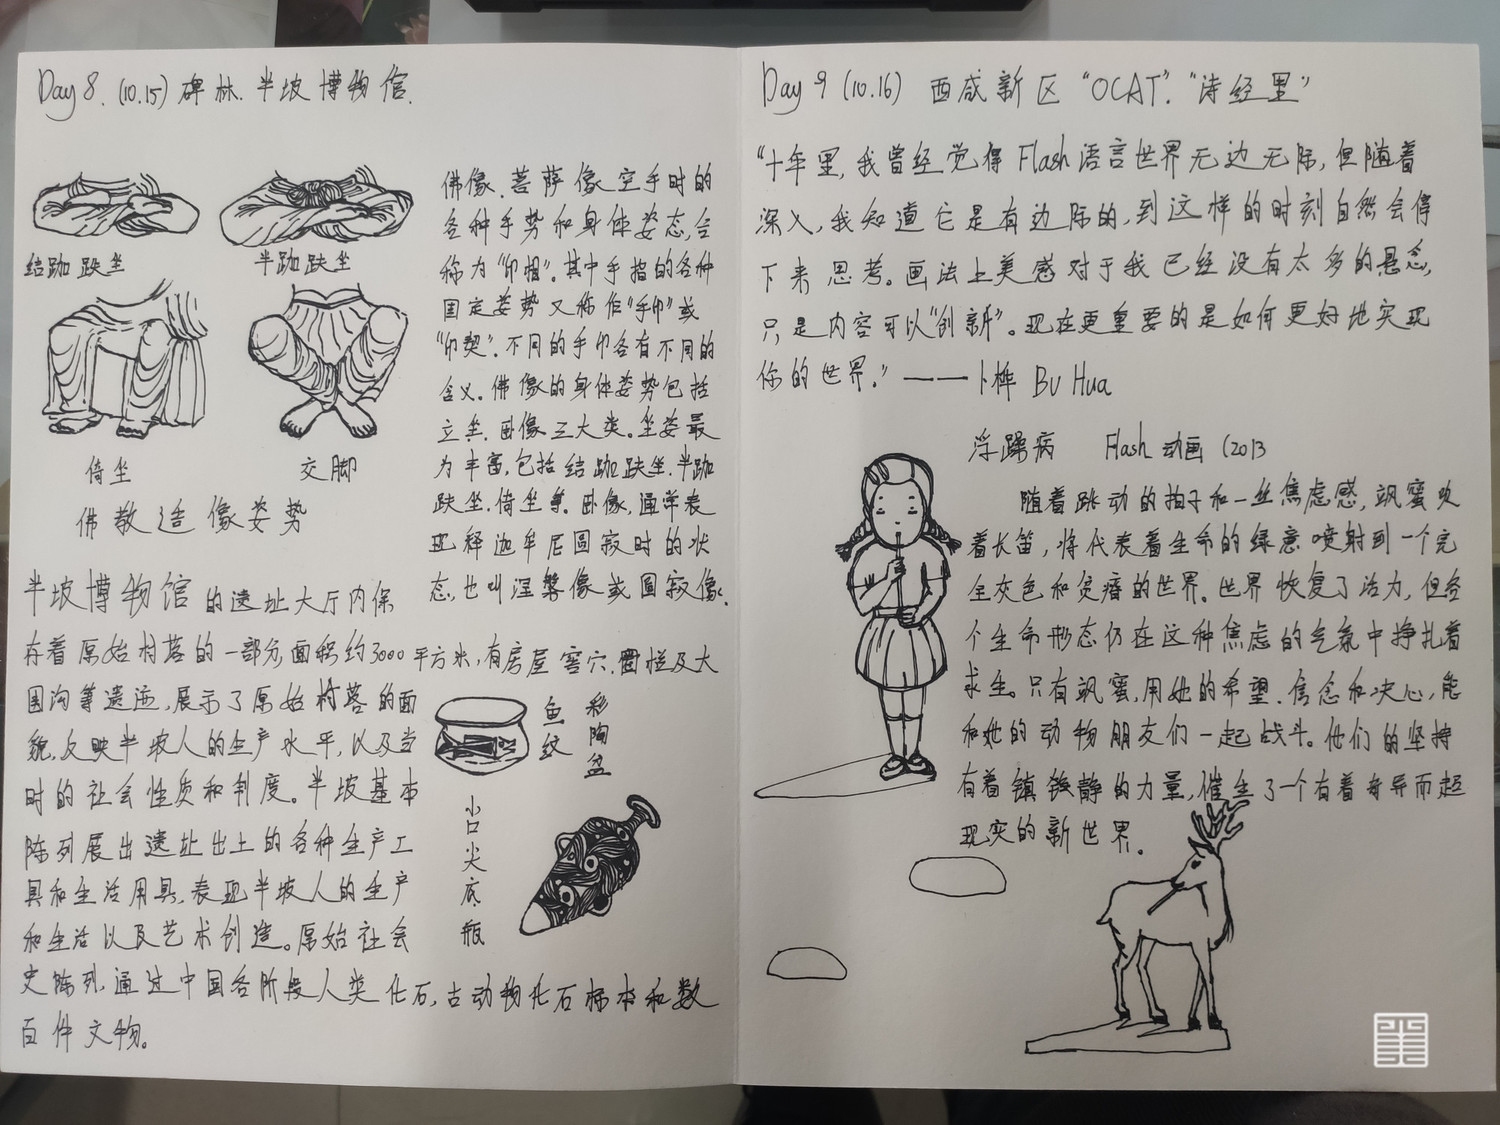 Day 8. (10.15) 碑林. 半坡博物馆.
结跏趺坐
半跏趺坐
倚坐
交脚
佛教造像姿势
佛像、菩萨像空手时的
各种手势和身体姿态,合
称为"印相"。其中手指的各种
固定姿势又称作"手印"或
"印契".不同的手印各有不同的
含义。佛像的身体姿势包括
立.坐.卧像三大类。坐姿最
为丰富,包括结跏趺坐.半跏
趺坐.倚坐等。卧像,通常表
现释迦牟尼圆寂时的状
态,也叫涅槃像或圆寂像.
半坡博物馆的遗址大厅内保
存着原始村落的一部分,面积约3000平方米,有房屋窖穴.圈栏及大
围沟等遗迹,展示了原始村落的面
貌,反映半坡人的生产水平,以及当
时的社会性质和制度。半坡基本
陈列展出遗址出土的各种生产工
具和生活用具,表现半坡人的生产
和生活以及艺术创造。原始社会
史陈列,通过中国各阶段人类化石,古动物化石标本和数
百件文物。
鱼纹
彩陶盆
小口尖底瓶
Day 9 (10.16) 西咸新区 "OCAT". "诗经里"
"十年里,我曾经觉得Flash语言世界无边无际,但随着
深入,我知道它是有边际的,到这样的时刻自然会停
下来思考。画法上美感对于我已经没有太多的悬念,
只是内容可以"创新"。现在更重要的是如何更好地实现
你的世界." ——卜桦 Bu Hua
浮躁病 Flash 动画 (2013
随着跳动的拍子和一丝焦虑感,飒蜜吹
着长笛,将代表着生命的绿意喷射到一个完
全灰色和贫瘠的世界。世界恢复了活力,但各
个生命形态仍在这种焦虑的气氛中挣扎着
求生。只有飒蜜,用她的希望.信念和决心,能
和她的动物朋友们一起战斗。他们的坚持
有着镇静的力量,催生了一个有着奇异而超
现实的新世界.